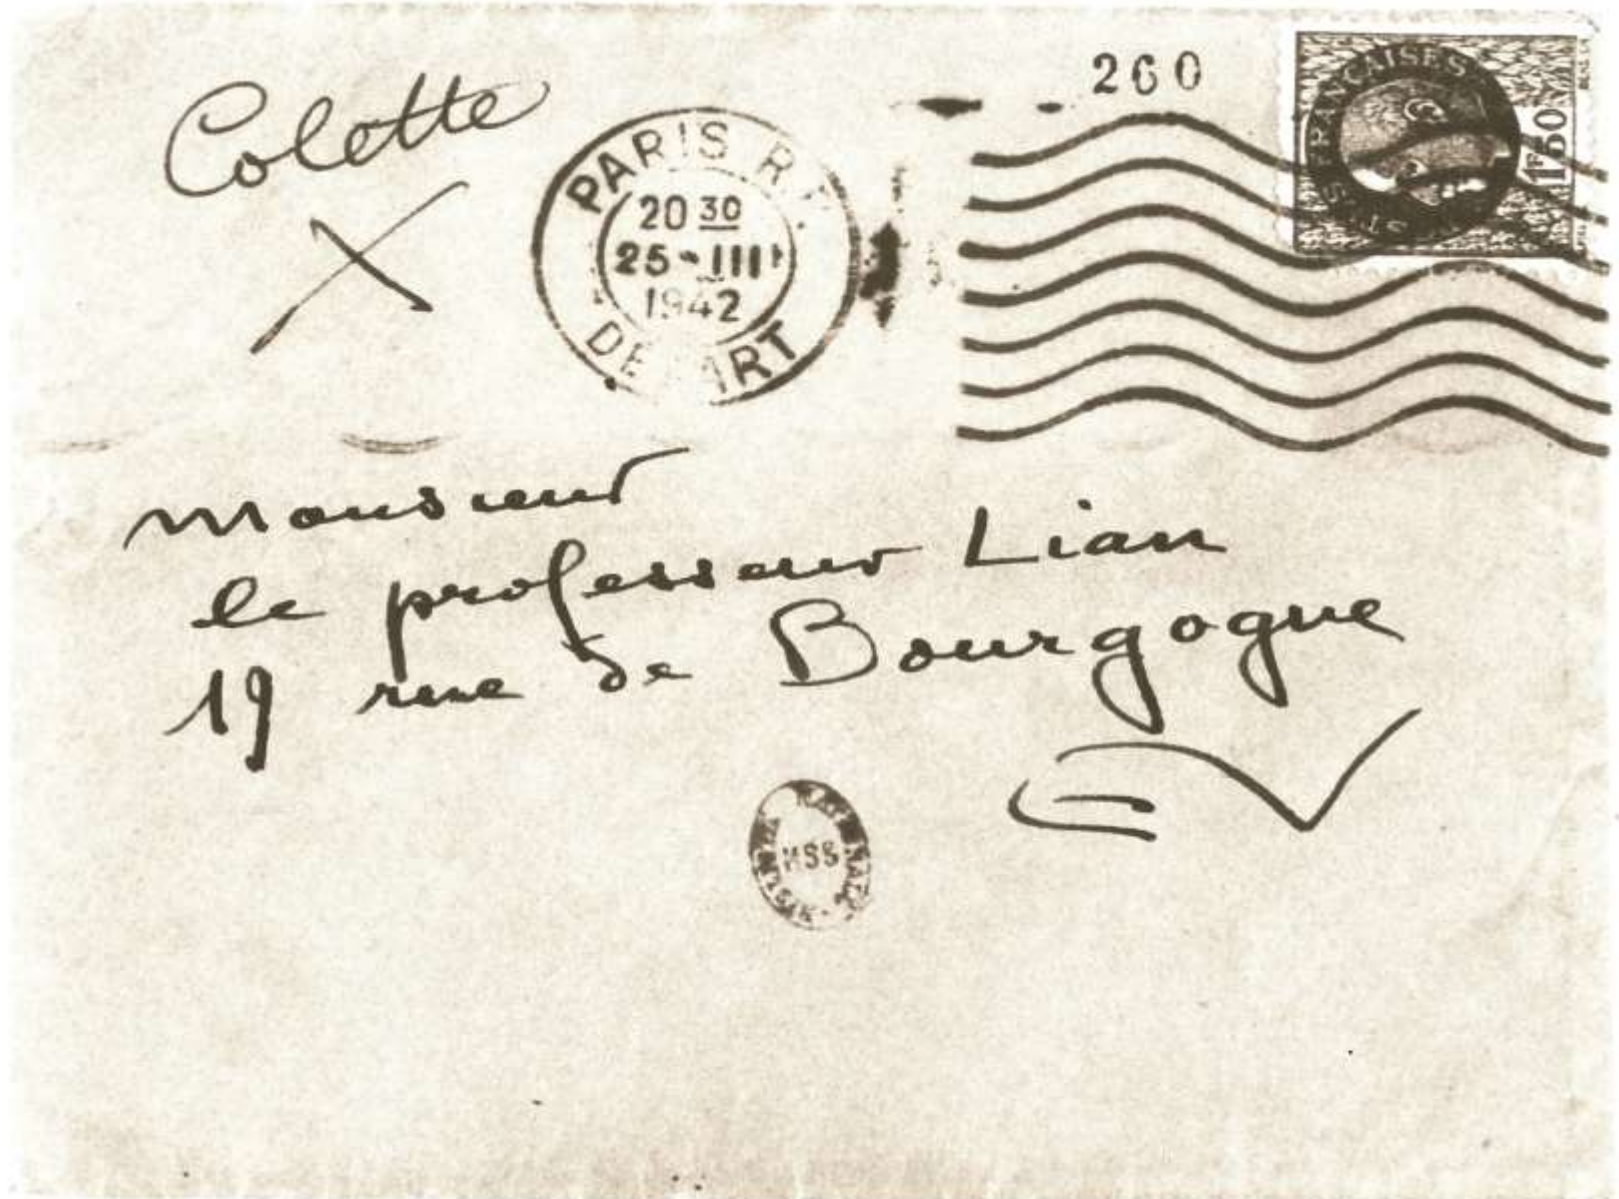 Colette
260
PARIS R.P.
20 30
25 - III
1942
DEPART
POSTES FRANÇAISES
1F50
Monsieur
le professeur Lian
19 rue de Bourgogne
EV
MSS